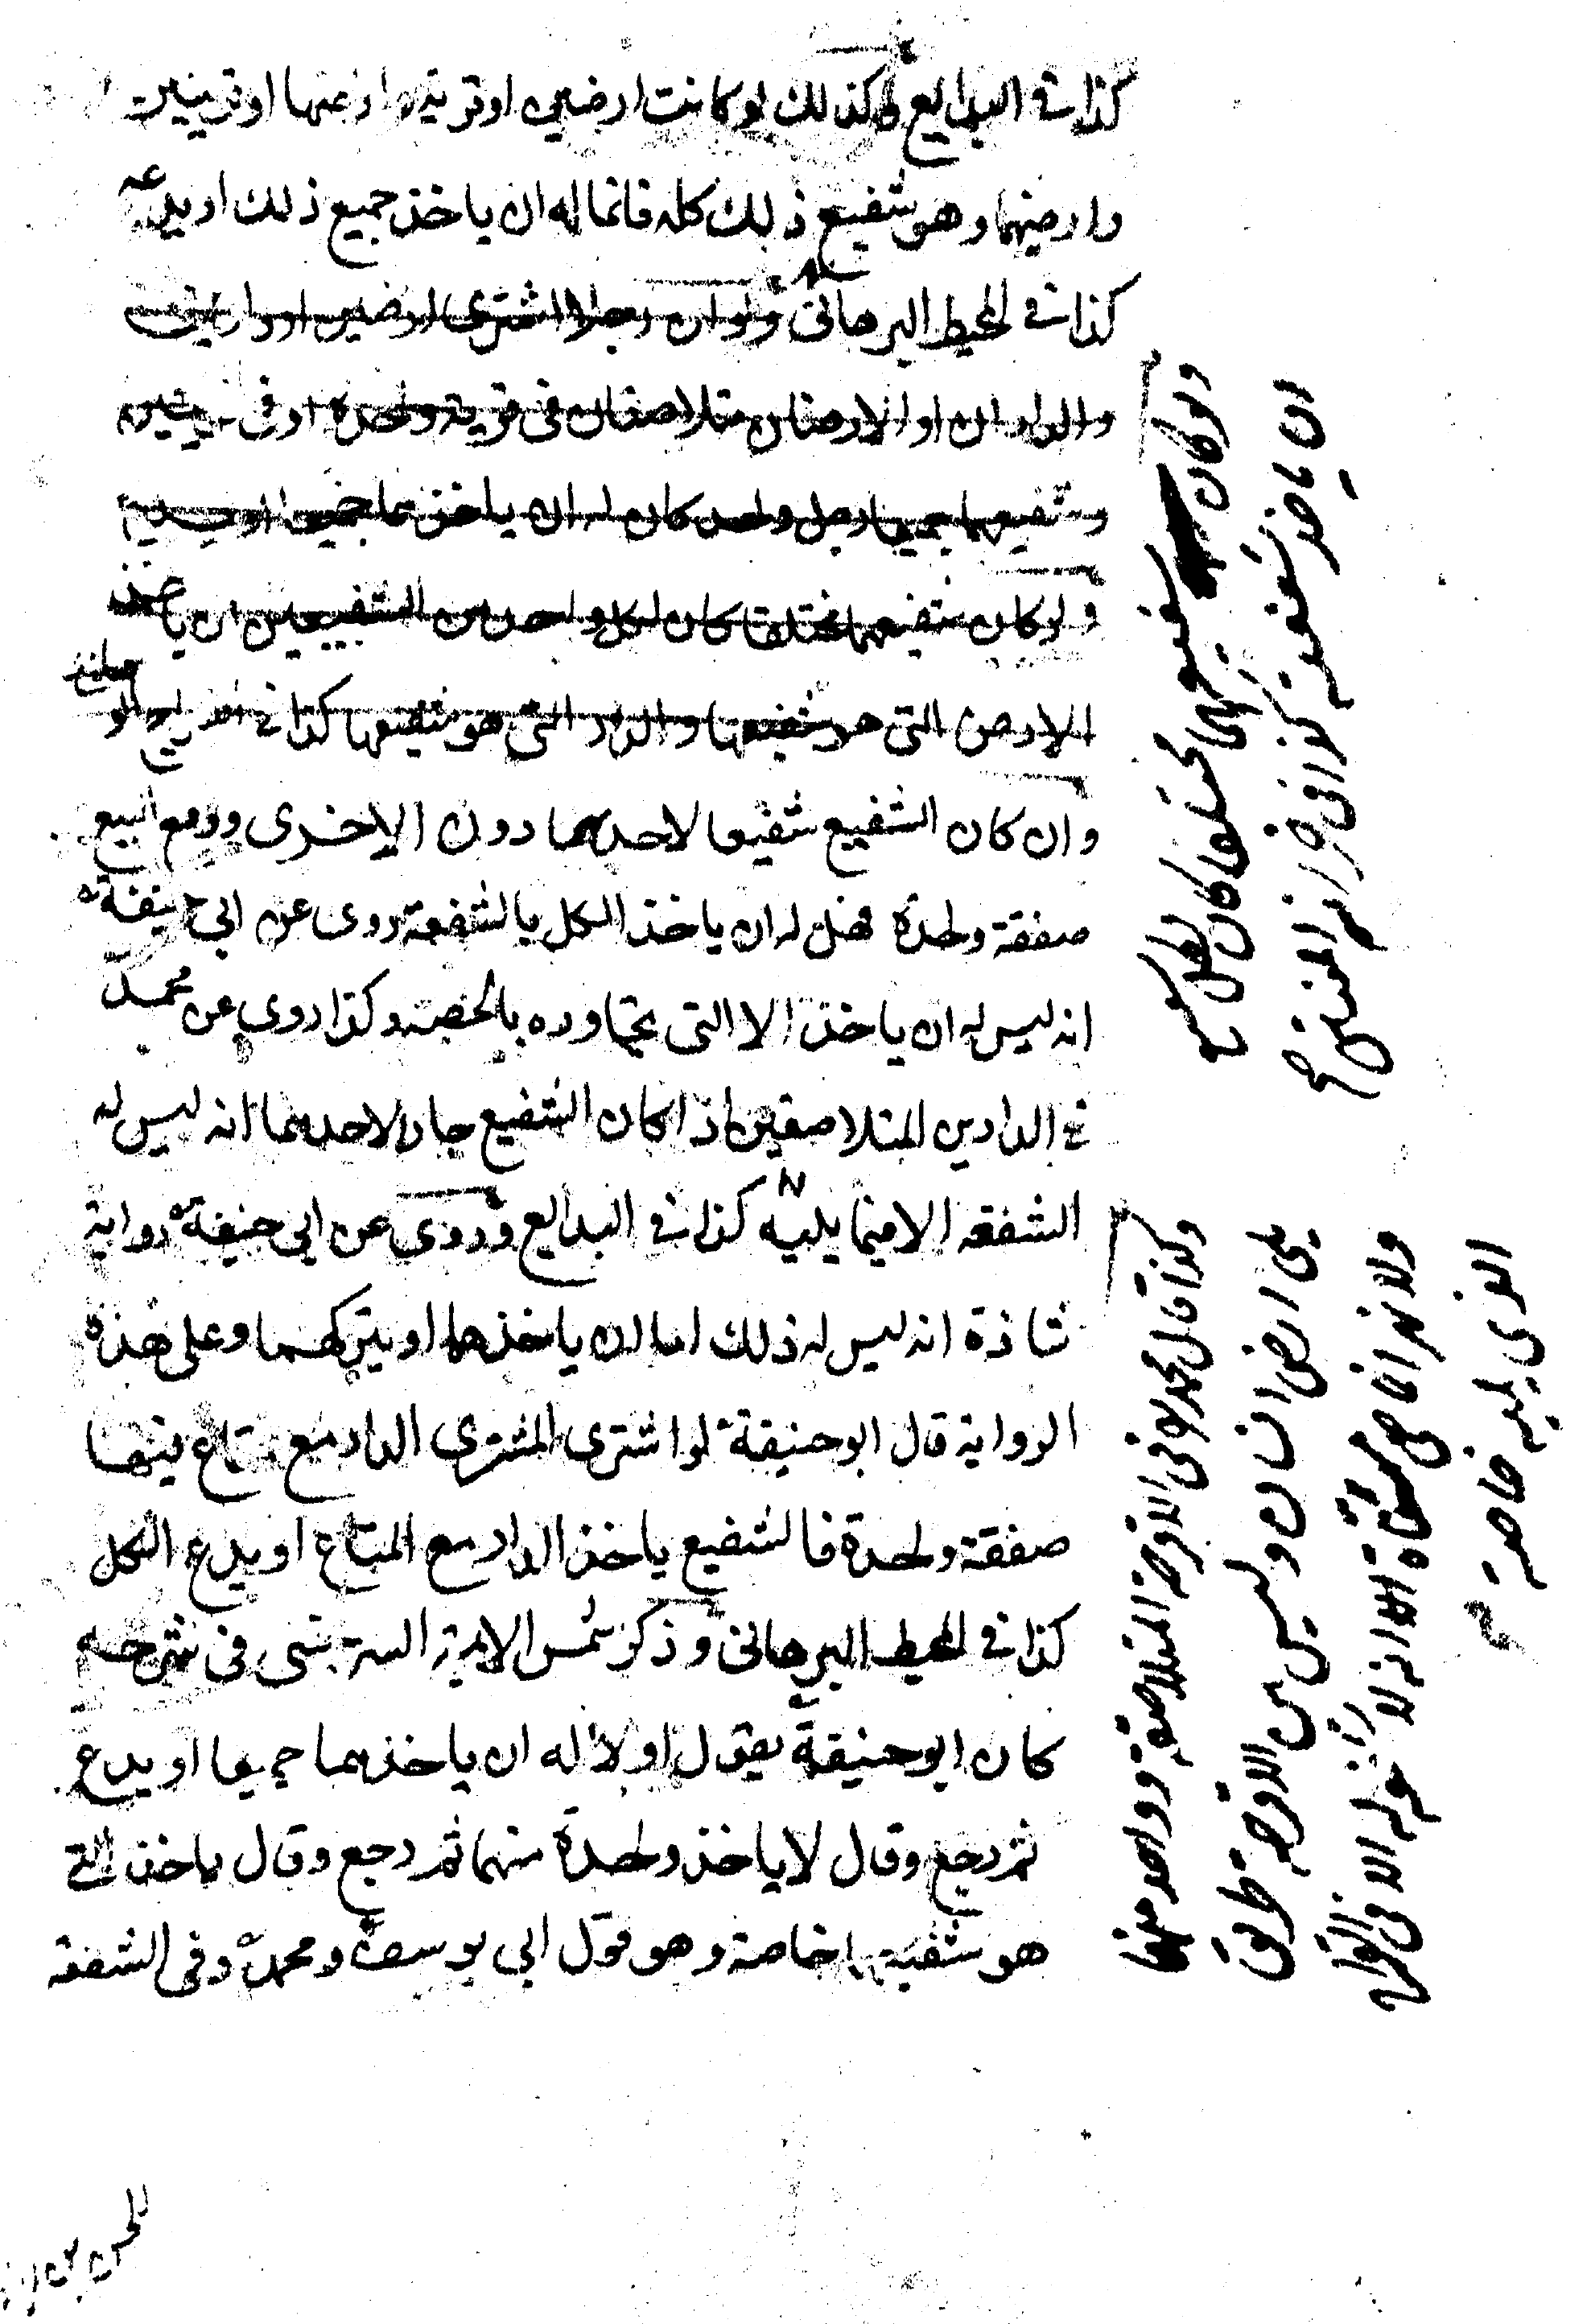 كذا في البدايع وكذلك لو كانت ارضين او قرية وارضها او قريتين
وارضيهما وهو شفيع ذلك كله فانما له ان ياخذ جميع ذلك او يدعه
كذا في المحيط البرهاني ولو ان رجلا اشترى ارضين او دارين
والداران او الارضان متلاصقان في قرية واحدة او في قريتين
وشفيعهما جميعا رجل واحد كان له ان ياخذهما جميعا او
ولو كان شفيعهما مختلفا كان لكل واحد من الشفيعين ان ياخذ
الارض التي هو شفيعها والدار التي هو شفيعها كذا في
وان كان الشفيع شفيعا لاحدهما دون الاخرى ووقع البيع
صفقة واحدة فهل له ان ياخذ الكل بالشفعة روى عن ابي حنيفة
انه ليس له ان ياخذ الا التي تجاوره بالحصة وكذا روي عن محمد
في الدارين المتلاصقين اذا كان الشفيع جارا لاحدهما انه ليس له
الشفعة الا فيما يليه كذا في البدايع وروى عن ابي حنيفة رواية
شاذة انه ليس له ذلك اما ان ياخذهما او يتركهما وعلى هذه
الرواية قال ابو حنيفة لو اشترى المشترى الدار مع متاع فيها
صفقة واحدة فالشفيع ياخذ الدار مع المتاع او يدع الكل
كذا في المحيط البرهاني وذكر شمس الايمة السرخسى في شرحه
كان ابو حنيفة يقول اولا له ان ياخذهما جميعا او يدع
ثم رجع وقال لا ياخذ واحدة منهما ثم رجع وقال ياخذ التي
هو شفيعها خاصة وهو قول ابي يوسف ومحمد وفي الشفعة
ولو كان شفيعهما مختلفا كان لكل شفيع
ان ياخذ شفعته كذا في
وكذا قال محمد في الاقرحة المتلاصقة وواحد منها
يلي ارض انسان وليس بين الاقرحة طريق
ولا نهر انما هي مسناة انه لا شفعة له الا في القراح
الذي يليه خاصة